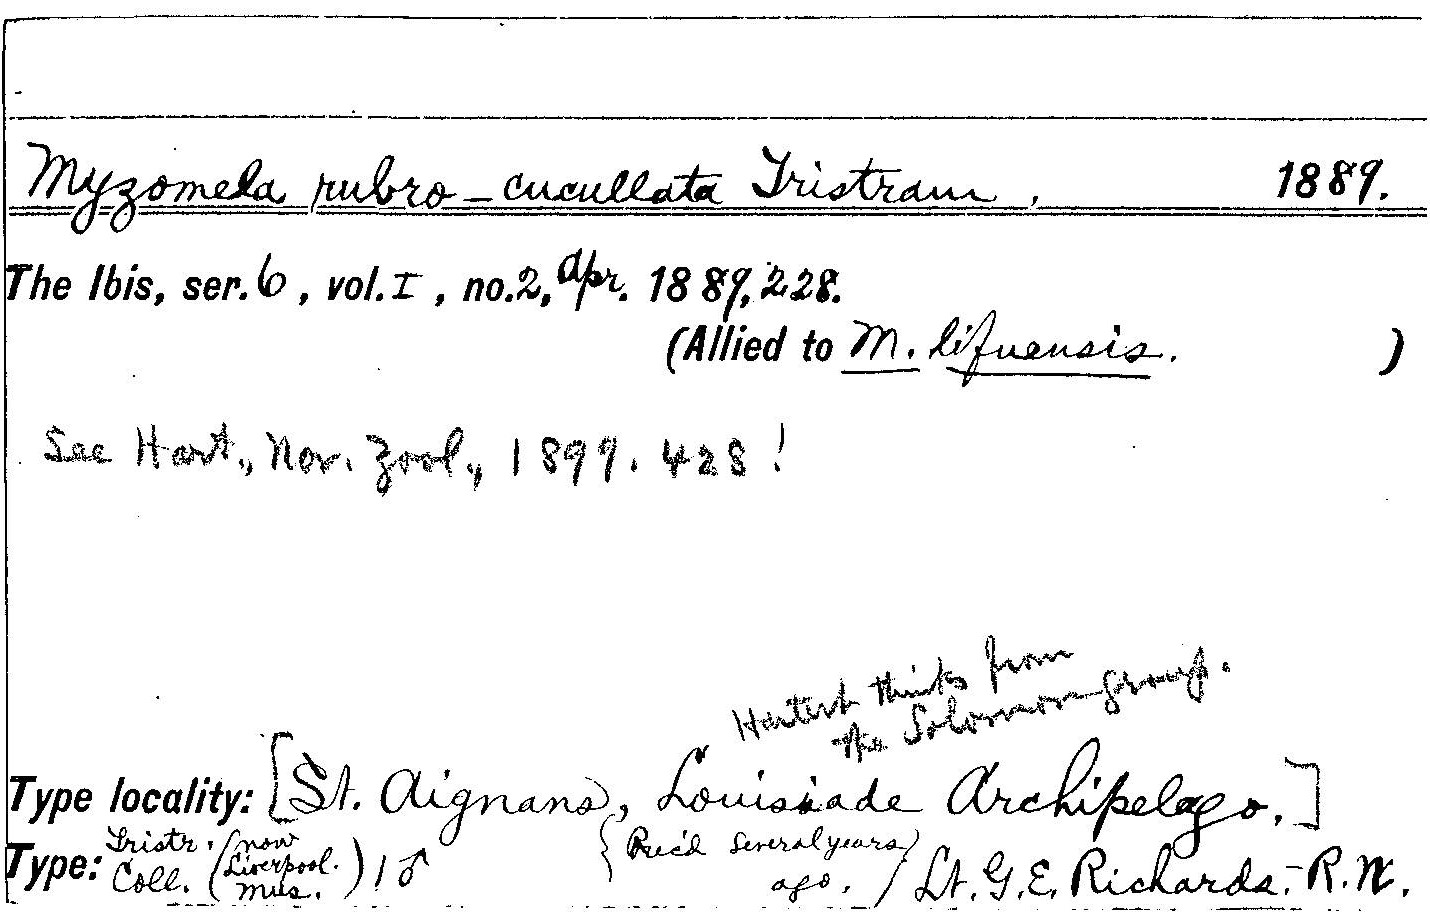 Myzomela rubro-cucullata Tristram. 1889.
The Ibis, ser. 6, vol. I, no. 2, Apr. 1889, 228.
(Allied to M. lifuensis. )
See Hart., Nov. Zool., 1899. 428!
Hartert thinks from
the Solomon group.
Type locality: [St. Aignans, Louisiade Archipelago.]
Type: Tristr. Coll. (now Liverpool. Mus.) 1 ♂ {Rec'd several years ago.} Lt. G. E. Richards. - R. N.